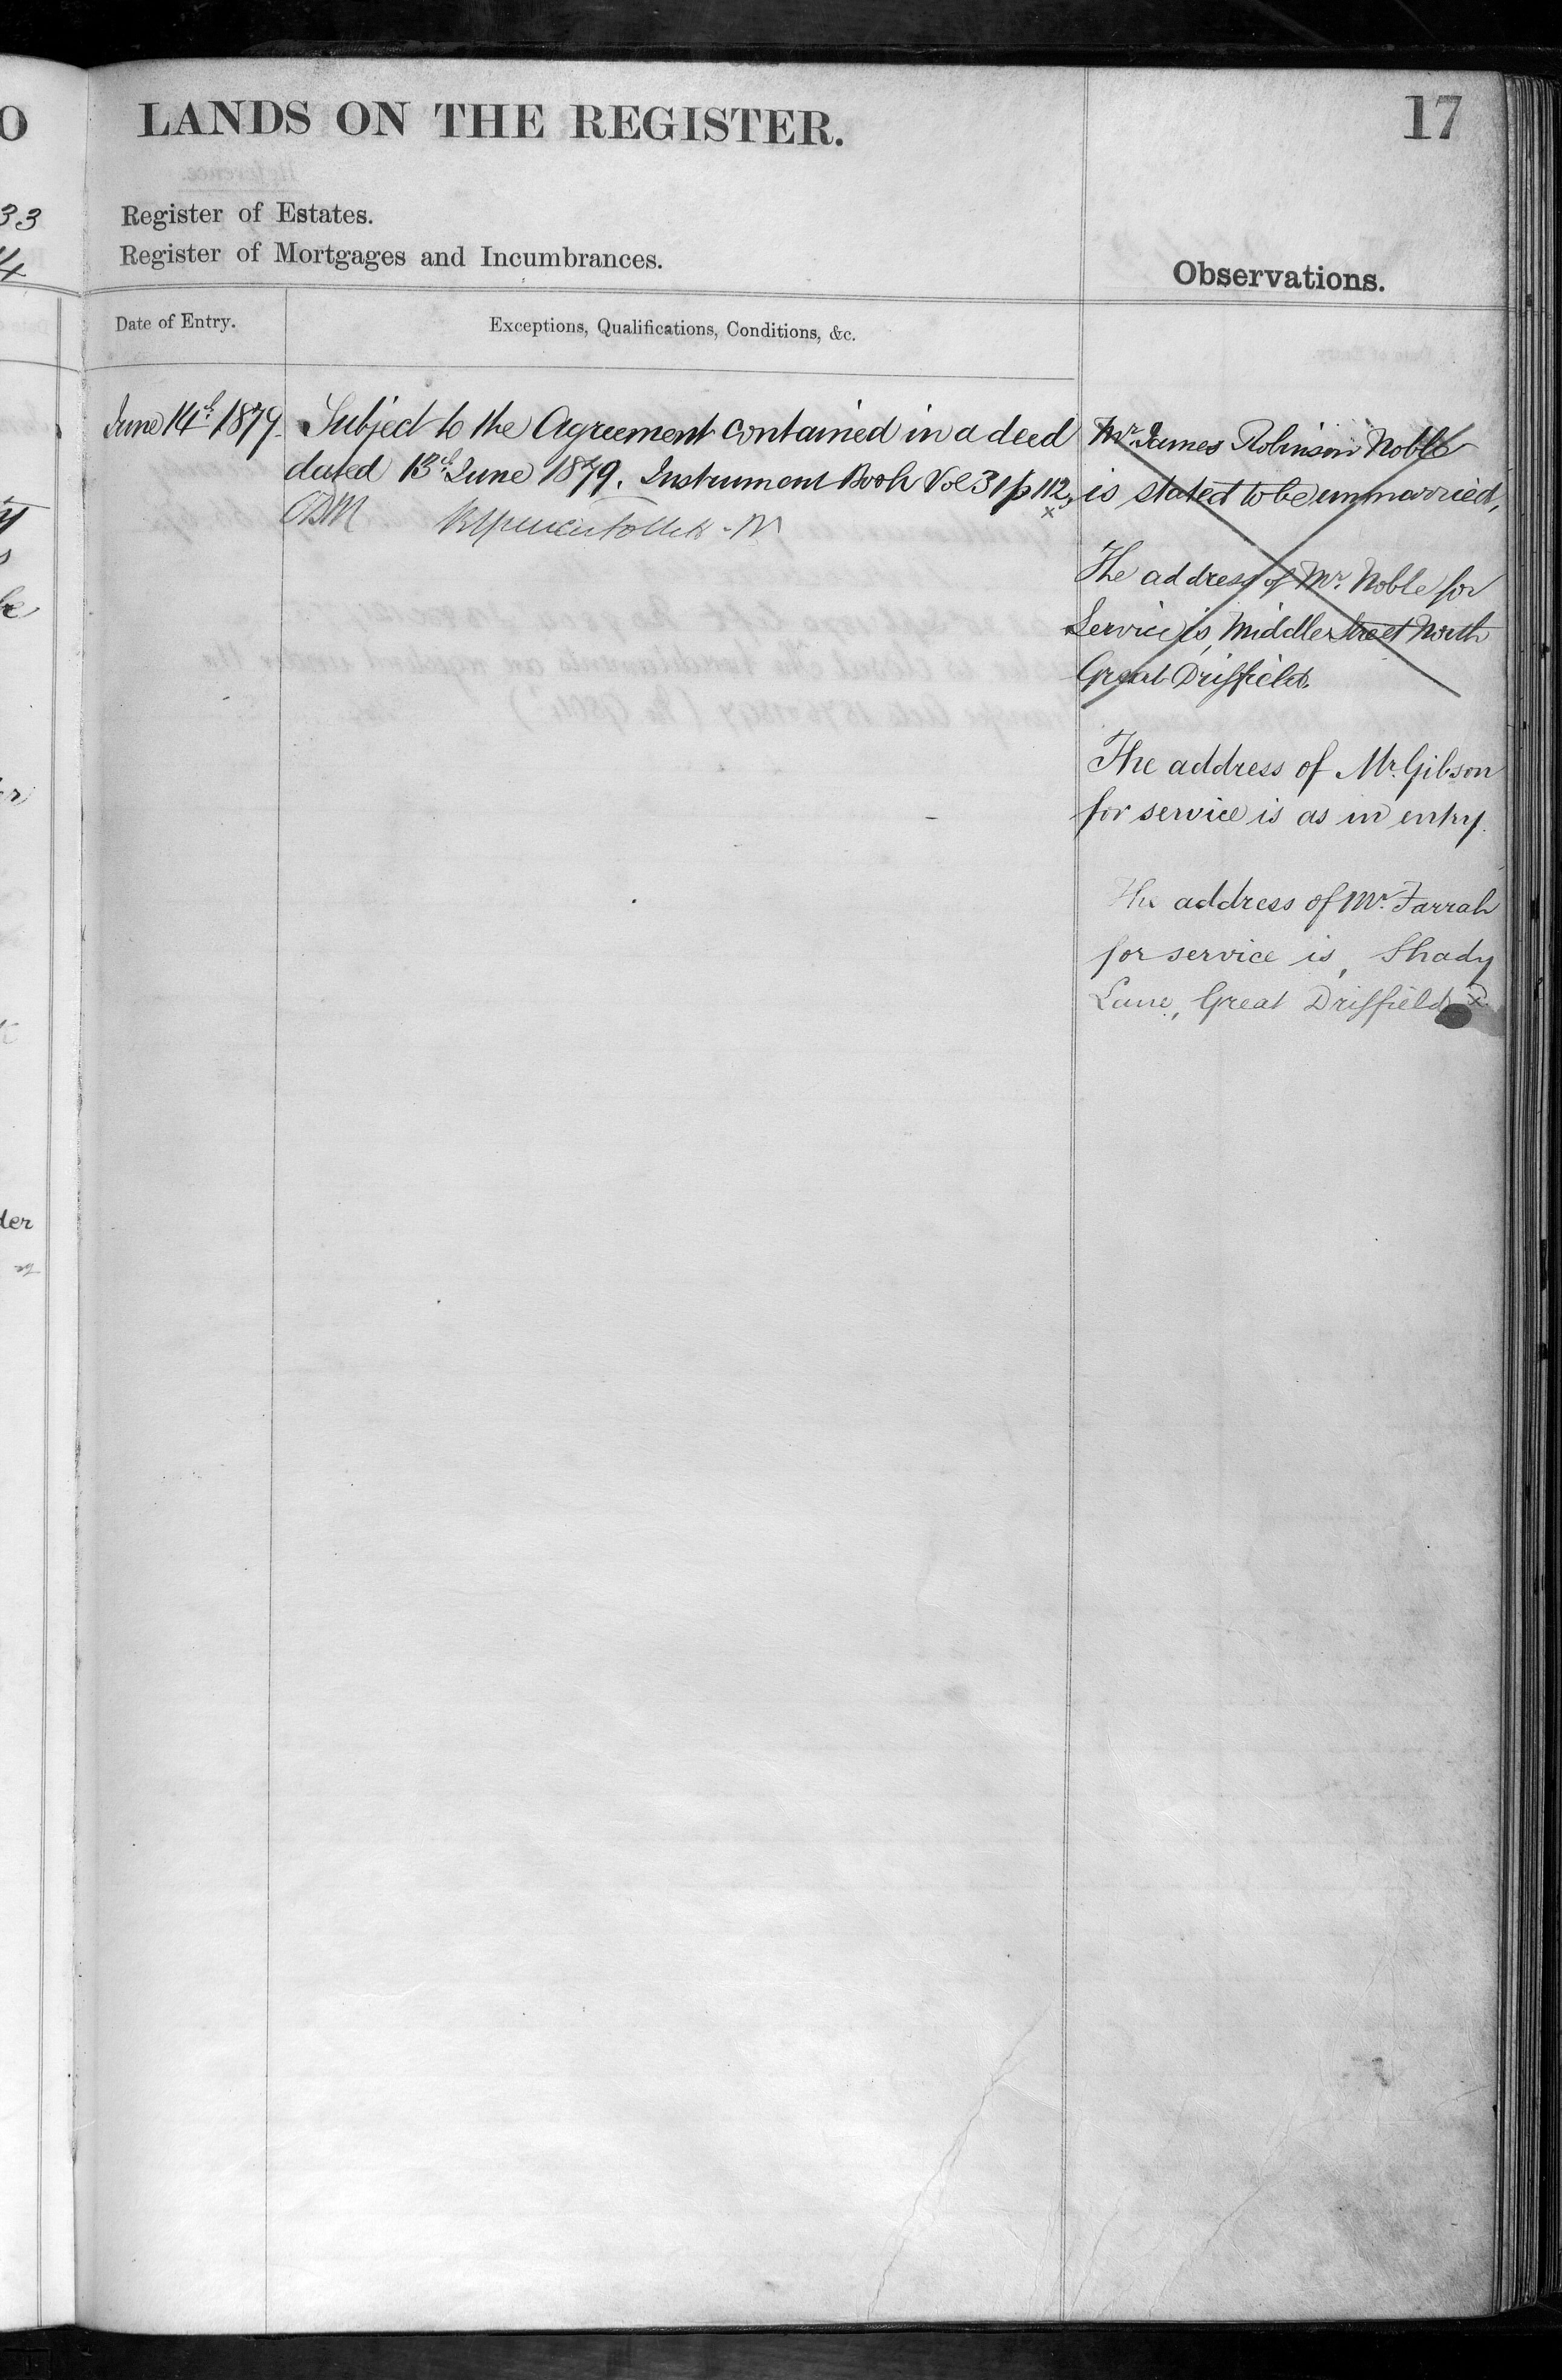 LANDS ON THE REGISTER.
17
Register of Estates.
Register of Mortgages and Incumbrances.
Observations.
Date of Entry.
Exceptions, Qualifications, Conditions, &c.
June 14th 1879.
Subject to the Agreement contained in a deed
dated 13th June 1879. Instrument Book Vol 31 p 112,
Mr. James Robinson Noble
is stated to be unmarried,
The address of Mr. Noble for
Service is, Middle Street North
Great Driffield.
The address of Mr. Gibson
for service is as in entry.
The address of Mr. Farrah
for service is, Shady
Lane, Great Driffield
33
der